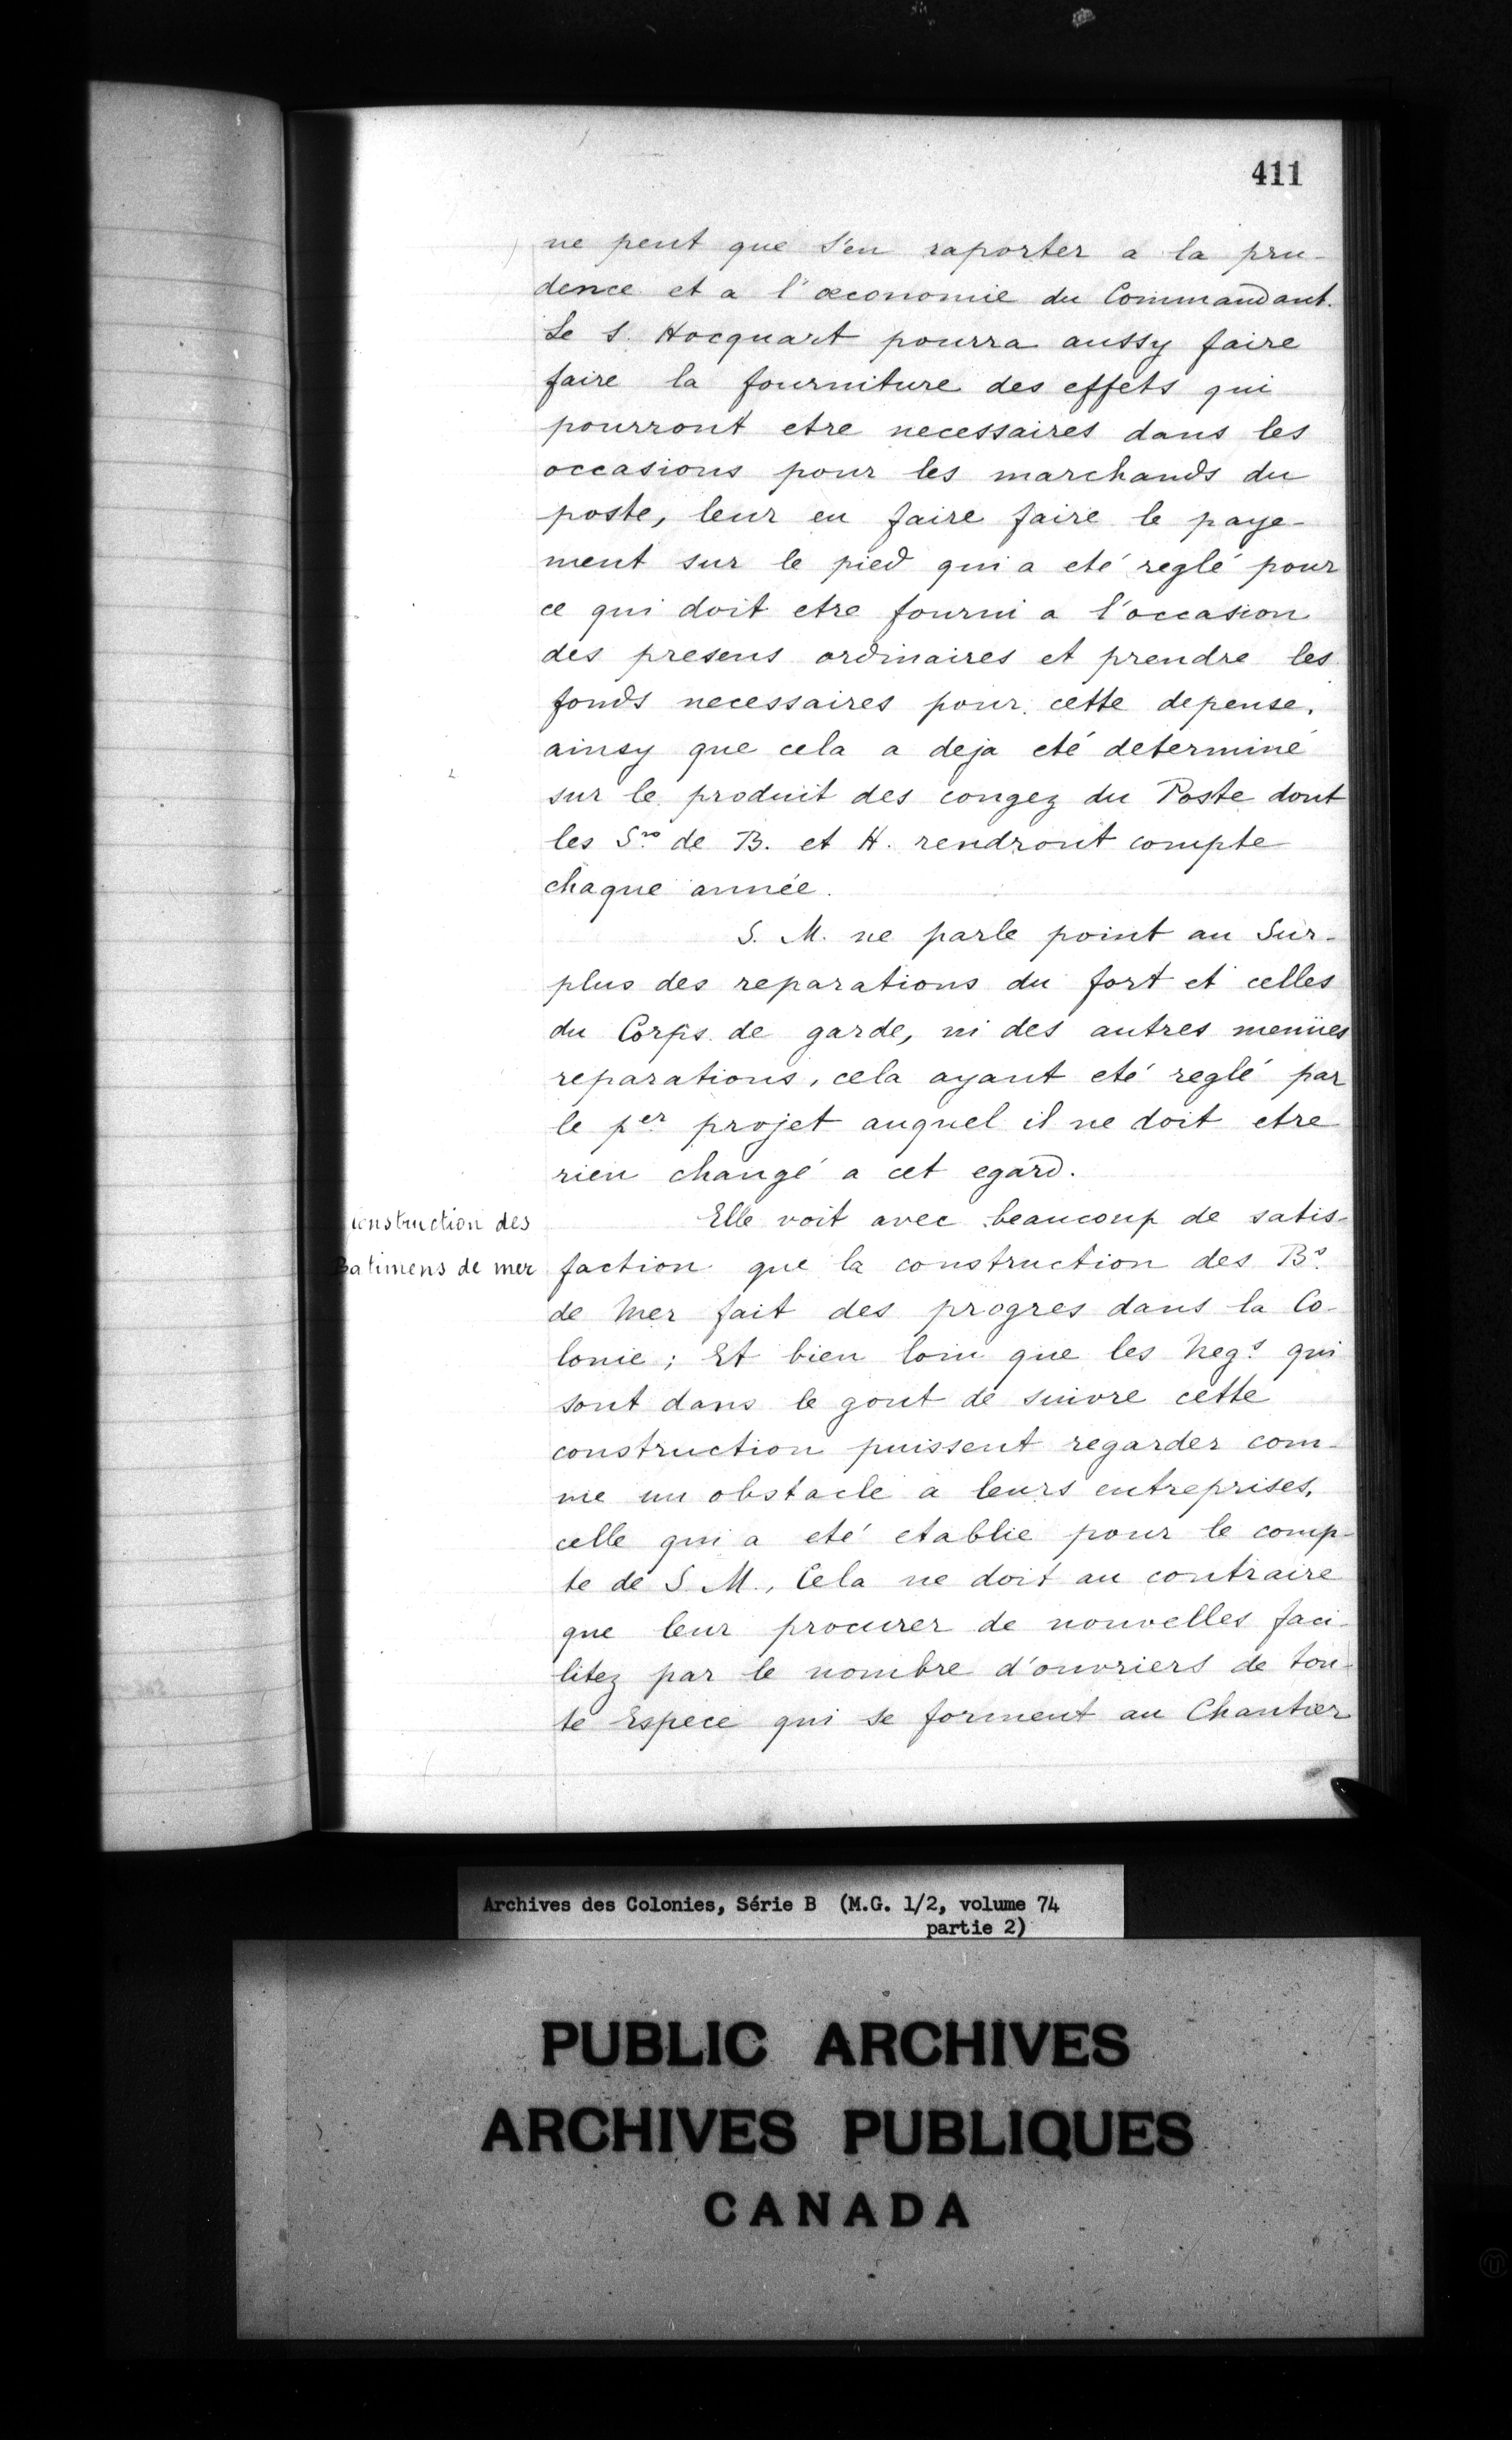 411
ne peut que s'en raporter a la pru-
dence et a l'œconomie du Commandant.
Le S. Hocquart pourra aussy faire
faire la fourniture des effets qui
pourront etre necessaires dans les
occasions pour les marchands du
poste, leur en faire faire le paye-
ment sur le pied qui a eté reglé pour
ce qui doit etre fourni a l'occasion
des presens ordinaires et prendre les
fonds necessaires pour cette depense,
ainsy que cela a deja eté determiné
sur le produit des congez du Poste dont
les Srs de B. et H. rendront compte
chaque année.
S. M. ne parle point au Sur-
plus des reparations du fort et celles
du Corps de garde, ni des autres menües
reparations, cela ayant eté reglé par
le per projet auquel il ne doit etre
rien changé a cet egard.
Construction des
Batimens de mer
Elle voit avec beaucoup de satis-
faction que la construction des Bs.
de Mer fait des progres dans la Co-
lonie; Et bien loin que les Negs qui
sont dans le gout de suivre cette
construction puissent regarder com-
me un obstacle a leurs entreprises,
celle qui a eté etablie pour le comp-
te de S. M., Cela ne doit au contraire
que leur procurer de nouvelles faci-
litez par le nombre d'ouvriers de tou-
te Espece qui se forment au Chantier
Archives des Colonies, Série B (M.G. 1/2, volume 74
partie 2)
PUBLIC ARCHIVES
ARCHIVES PUBLIQUES
CANADA